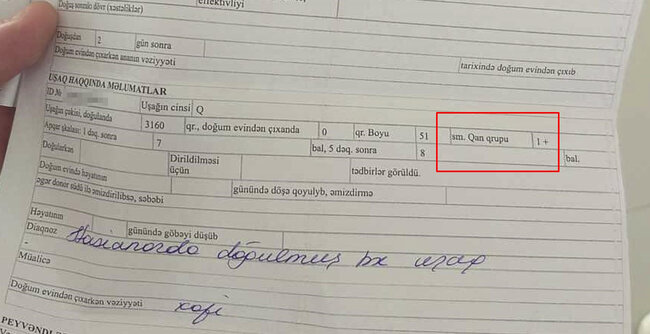 effektivliyi
Doğuş sonrakı dövr (xəstəliklər)
Doğuşdan 2 gün sonra tarixində doğum evindən çıxıb
Doğum evindən çıxarkən ananın vəziyyəti
UŞAQ HAQQINDA MƏLUMATLAR
ID № Uşağın cinsi Q
Uşağın çəkisi, doğulanda 3160 qr., doğum evindən çıxanda 0 qr. Boyu 51 sm. Qan qrupu 1 +
Apqar şkalası: 1 dəq. sonra 7 bal, 5 dəq. sonra 8 bal.
Doğularkən Dirildilməsi üçün tədbirlər görüldü.
Doğum evində həyatının günündə döşə qoyulyb, əmizdirmə
əgər donor südü ilə əmizdirilibsə, səbəbi
Həyatının günündə göbəyi düşüb
Diaqnoz doğulmuş uşaq
-
Müalicə
Doğum evindən çıxarkən vəziyyəti kafi